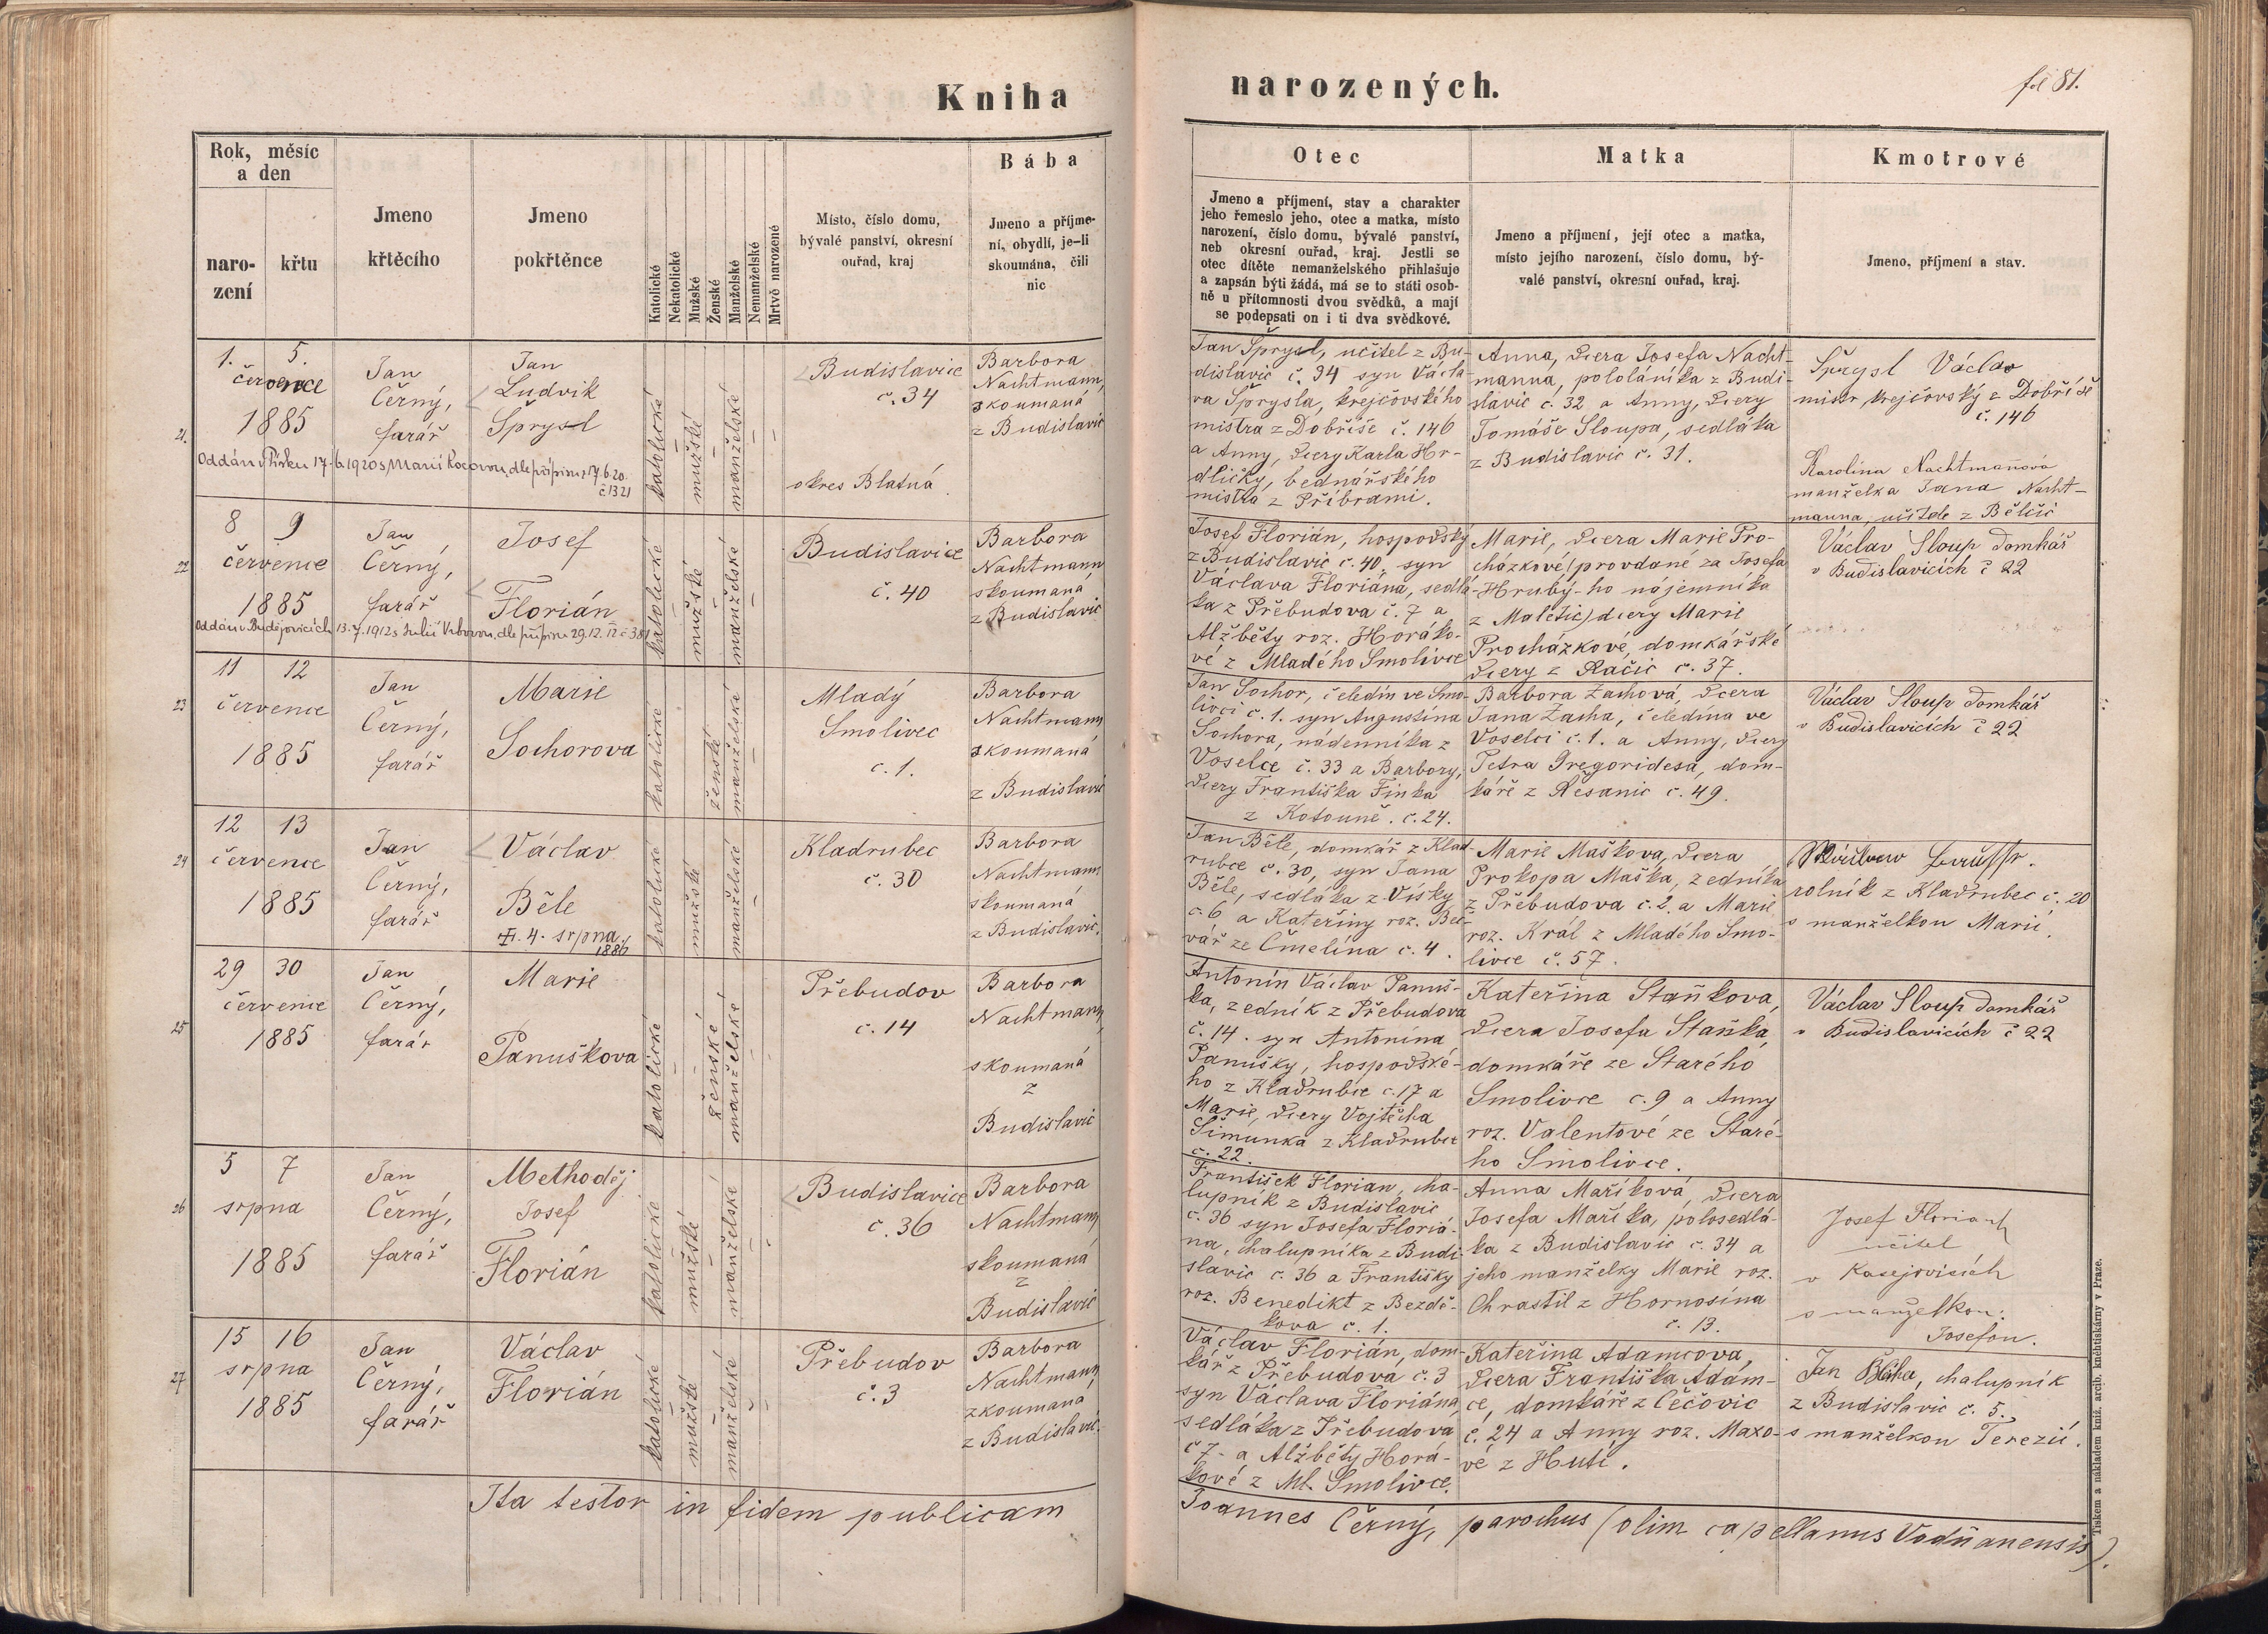 Kniha
narozených.
fol 81.
Rok, měsíc
a den
naro-
zení
křtu
Jmeno
křtěcího
Jmeno
pokřtěnce
Katolické
Nekatolické
Mužské
Ženské
Manželské
Nemanželské
Mrtvě narozené
Místo, číslo domu,
bývalé panství, okresní
ouřad, kraj
Bába
Jmeno a příjme-
ní, obydlí, je-li
skoumána, čili
nic
Otec
Jmeno a příjmení, stav a charakter
jeho řemeslo jeho, otec a matka, místo
narození, číslo domu, bývalé panství,
neb okresní ouřad, kraj. Jestli se
otec dítěte nemanželského přihlašuje
a zapsán býti žádá, má se to státi osob-
ně u přítomnosti dvou svědků, a mají
se podepsati on i ti dva svědkové.
Matka
Jmeno a příjmení, její otec a matka,
místo jejího narození, číslo domu, bý-
valé panství, okresní ouřad, kraj.
Kmotrové
Jmeno, příjmení a stav.
21.
1. 5.
července
1885
Jan
Černý,
farář
Jan
Ludvik
Šprysl
Oddán v Písku 17.6.1920 s Marií Kocovou, dle přípisu z 17.6.20.
č 1321
katolické
mužské
manželské
Budislavice
č. 34
okres Blatná
Barbora
Nachtmann,
skoumaná
z Budislavic
Jan Šprysl, učitel z Bu-
dislavic č. 34 syn Václa-
va Šprysla, krejčovského
mistra z Dobříše č. 146
a Anny, dcery Karla Hr-
dličky, bednářského
mistra z Příbrami.
Anna, dcera Josefa Nacht-
manna, pololáníka z Budi-
slavic č. 32 a Anny, dcery
Tomáše Sloupa, sedláka
z Budislavic č. 31.
Šprysl Václav
mistr krejčovský z Dobříše
č. 146
Karolina Nachtmanová
manželka Jana Nacht-
manna, učitele z Bělčic
22
8 9
července
1885
Jan
Černý,
farář
Josef
Florián
Oddán v Budějovicích 13.7.1912 s Julií Vrbovou, dle přípisu 29.12.12 č 381
katolické
mužské
manželské
Budislavice
č. 40
Barbora
Nachtmann
skoumaná
z Budislavic
Josef Florián, hospodský
z Budislavic č. 40, syn
Václava Floriána, sedlá-
ka z Přebudova č. 7 a
Alžběty roz. Horáko-
vé z Mladého Smolivce
Marie, dcera Marie Pro-
cházkové (provdané za Josefa
Hrubý-ho nájemníka
z Maletic) dcery Marie
Procházkové, domkářské
dcery z Račic č. 37.
Václav Sloup domkář
v Budislavicích č 22
23
11 12
července
1885
Jan
Černý,
farář
Marie
Sochorova
katolické
ženské
manželské
Mladý
Smolivec
č. 1.
Barbora
Nachtmann
skoumaná
z Budislavic
Jan Sochor, čeledín ve Smo-
livci č. 1. syn Augustina
Sochora, nádenníka z
Voselce č. 33 a Barbory,
dcery Františka Finka
z Kotouně. č. 24.
Barbora Zachová, dcera
Jana Zacha, čeledína ve
Voselci č. 1. a Anny, dcery
Petra Gregoridesa, dom-
káře z Řesanic č. 49.
Václav Sloup domkář
v Budislavicích č 22
24
12 13
července
1885
Jan
Černý,
farář
Václav
Běle
4. srpna
1886
katolické
mužské
manželské
Kladrubec
č. 30
Barbora
Nachtmann
skoumaná
z Budislavic.
Jan Běle, domkář z Klad-
rubce č. 30, syn Jana
Běle, sedláka z Vísky
č. 6 a Kateřiny roz. Beč-
vář ze Čmelína č. 4.
Marie Maškova, dcera
Prokopa Maška, zedníka
z Přebudova č. 2 a Marie
roz. Král z Mladého Smo-
livce č. 57.
rolník z Kladrubec č. 20
s manželkou Marií.
25
29 30
července
1885
Jan
Černý,
farář
Marie
Panuškova
katolické
ženské
manželské
Přebudov
č. 14
Barbora
Nachtmann,
skoumaná
z
Budislavic
Antonín Václav Panuš-
ka, zedník z Přebudova
č. 14. syn Antonína
Panušky, hospodské-
ho z Kladrubce č. 17 a
Marie, dcery Vojtěcha
Šimunka z Kladrubce
č. 22.
Kateřina Staňkova,
dcera Josefa Staňka,
domkáře ze Starého
Smolivce č. 9 a Anny
roz. Valentové ze Staré-
ho Smolivce.
Václav Sloup domkář
v Budislavicích č 22
26
5 7
srpna
1885
Jan
Černý,
farář
Methoděj
Josef
Florián
katolické
mužské
manželské
Budislavice
č. 36
Barbora
Nachtmann
skoumaná
z
Budislavic
František Florian, cha-
lupník z Budislavic
č. 36 syn Josefa Floriá-
na, chalupníka z Budi-
slavic č. 36 a Františky
roz. Benedikt z Bezdě-
kova č. 1.
Anna Maříková, dcera
Josefa Maříka, polosedlá-
ka z Budislavic č. 34 a
jeho manželky Marie roz.
Chrastil z Hornosína
č. 13.
Josef Florian
učitel
v Kasejovicích
s manželkou:
Josefou.
27
15 16
srpna
1885
Jan
Černý,
farář
Václav
Florián
katolické
mužské
manželské
Přebudov
č. 3
Barbora
Nachtmann
zkoumaná
z Budislavic.
Václav Florián, dom-
kář z Přebudova č. 3
syn Václava Floriána,
sedláka z Přebudova
č 7. a Alžběty Horá-
kové z Ml. Smolivce.
Kateřina Adamcova,
dcera Františka Adam-
ce, domkáře z Čečovic
č. 24 a Anny roz. Maxo-
vé z Hutí.
Jan Bláha, chalupník
z Budislavic č. 5.,
s manželkou Terezií.
Ita testor in fidem publicam
Joannes Černý, parochus (olim capellanus Vodňanensis).
Tiskem a nákladem kníž. arcib. knihtiskárny v Praze.